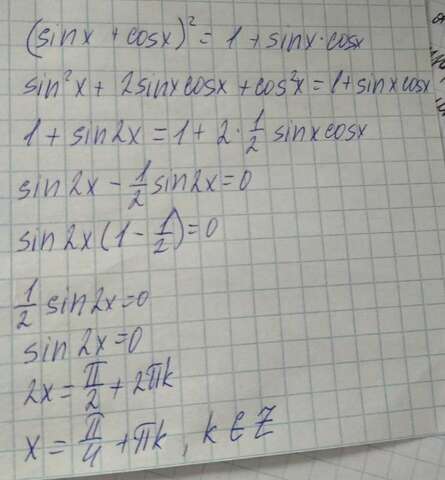 (sinx + cosx)² = 1 + sinx · cosx
sin²x + 2sinxcosx + cos²x = 1 + sinxcosx
1 + sin2x = 1 + 2 · 1/2 sinxcosx
sin2x - 1/2 sin2x = 0
sin2x(1 - 1/2) = 0
1/2 sin2x = 0
sin2x = 0
2x = π/2 + 2πk
x = π/4 + πk, k ∈ Z